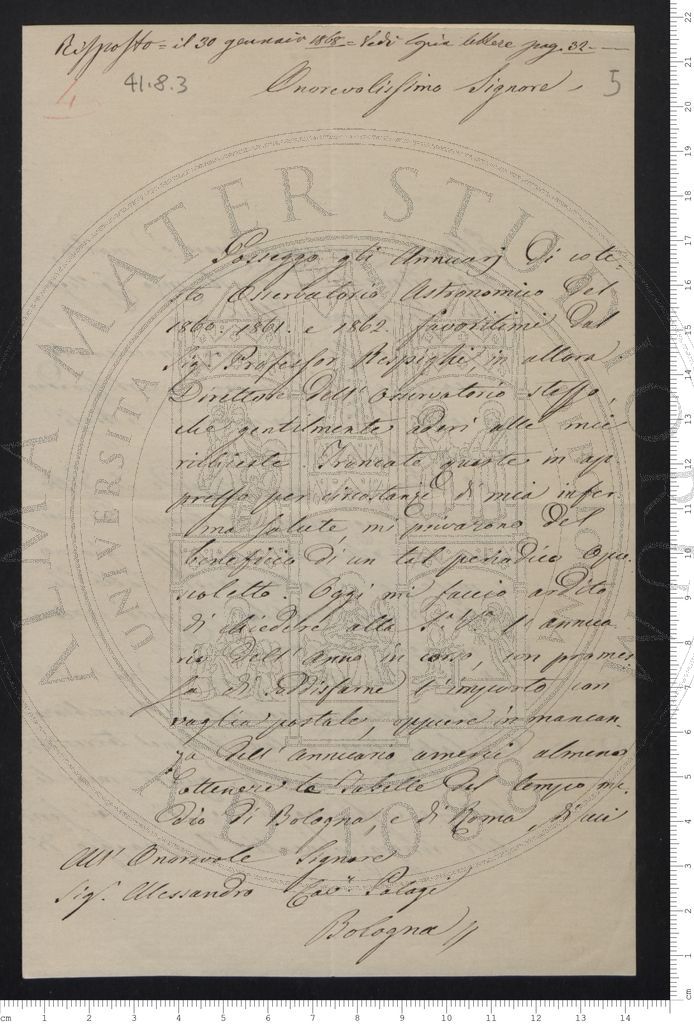 Risposto = il 30 gennaio 1868 = Vedi Copia lettere pag. 32.
4
41.8.3
5
Onorevolissimo Signore,
Posseggo gli Annuarj di cote-
sto Osservatorio Astronomico del
1860. 1861. e 1862. favoritimi dal
Sig.r Professor Respighi in allora
Direttore dell'Osservatorio stesso,
che gentilmente aderì alle mie
richieste. Troncate queste in ap
presso per circostanze di mia infer-
ma salute, mi privarono del
beneficio di un tal periodico opu-
scoletto. Oggi mi faccio ardito
di chiedere alla S.a V.a l'annua-
rio dell'Anno in corso, con promes
sa di soddisfarne l'importo con
vaglia postale, oppure in mancan-
za dell'annuario amerei almeno
ottenere le Tabelle del tempo me-
dio di Bologna, e di Roma, di cui
All'Onorevole Signore
Sig.r Alessandro Cav.r Palagi
Bologna //
ALMA MATER STUDIORUM
UNIVERSITA
A.D. 1088